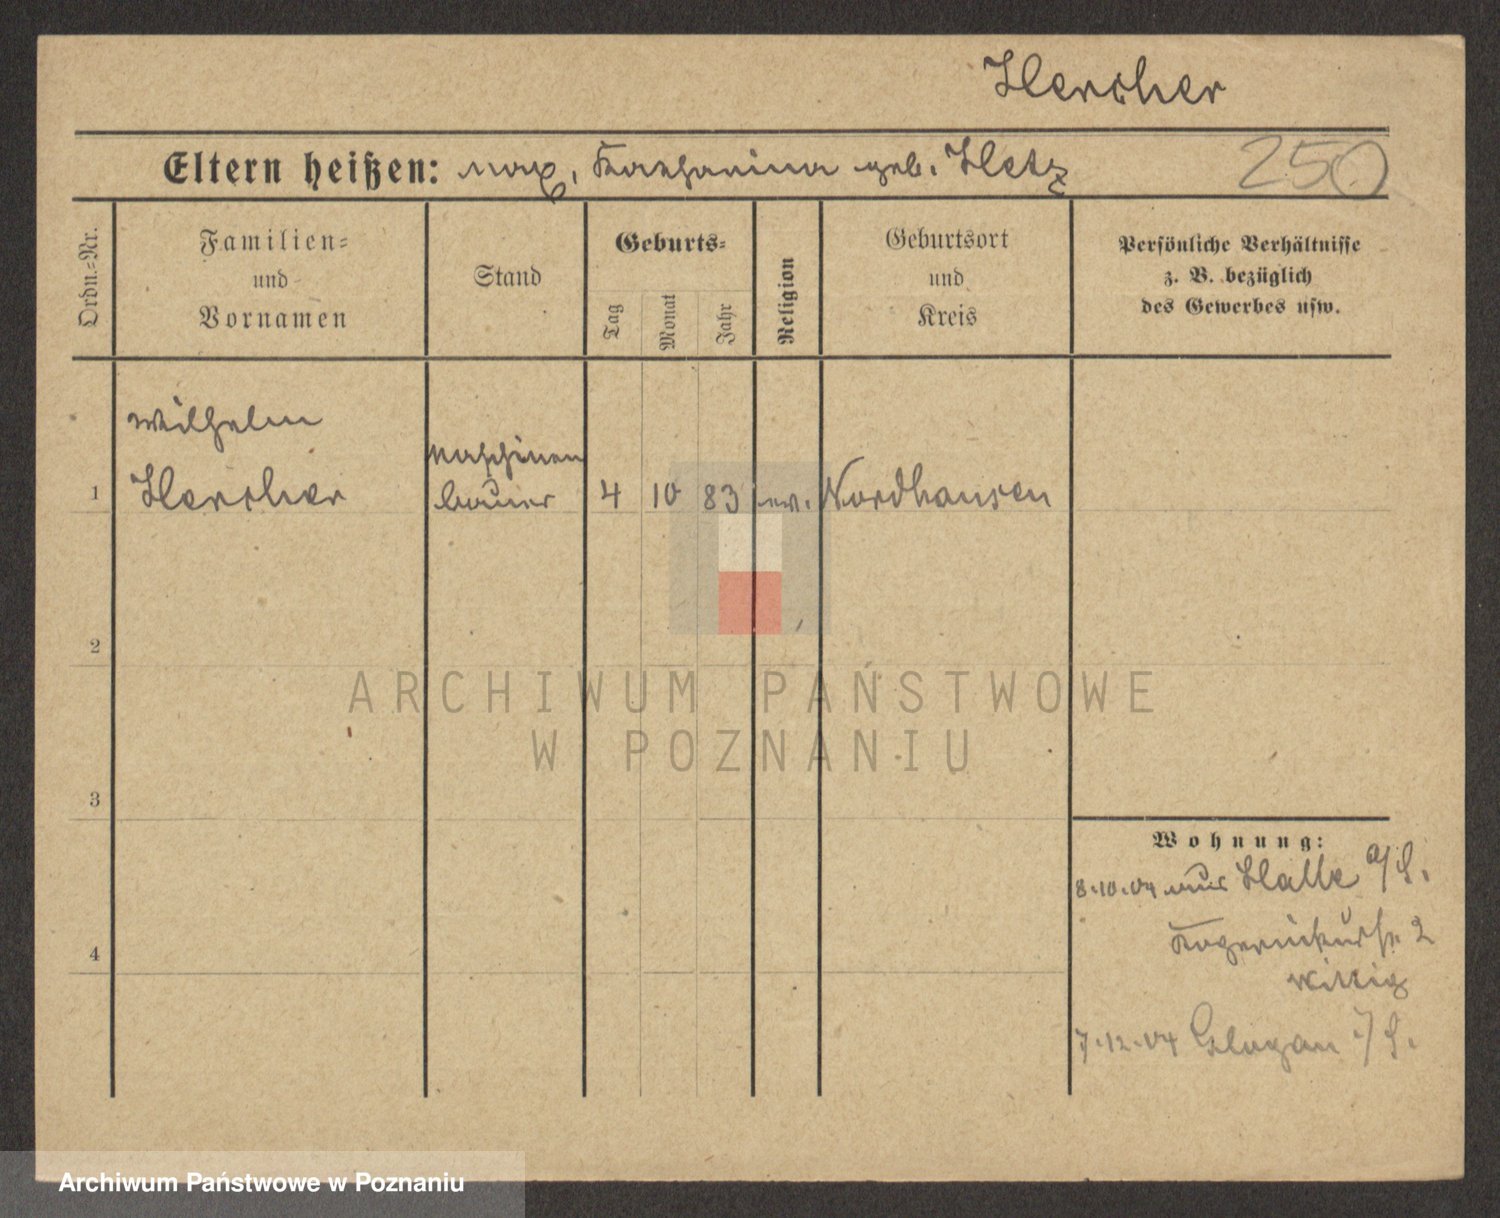 Hercher
Eltern heißen: Max, Katharina geb. Hetz
250
Ordn.-Nr.
Familien-
und
Vornamen
Stand
Geburts-
Tag
Monat
Jahr
Religion
Geburtsort
und
Kreis
Persönliche Verhältnisse
z. B. bezüglich
des Gewerbes usw.
Wilhelm
Maschinen
1 Hercher bauer 4 10 83 ev. Nordhausen
2
ARCHIWUM PAŃSTWOWE
W POZNANIU
3
Wohnung:
8.10.04 aus Halle a/S.
2
Wittig
4
7.12.04 Glogau /S.
Archiwum Państwowe w Poznaniu